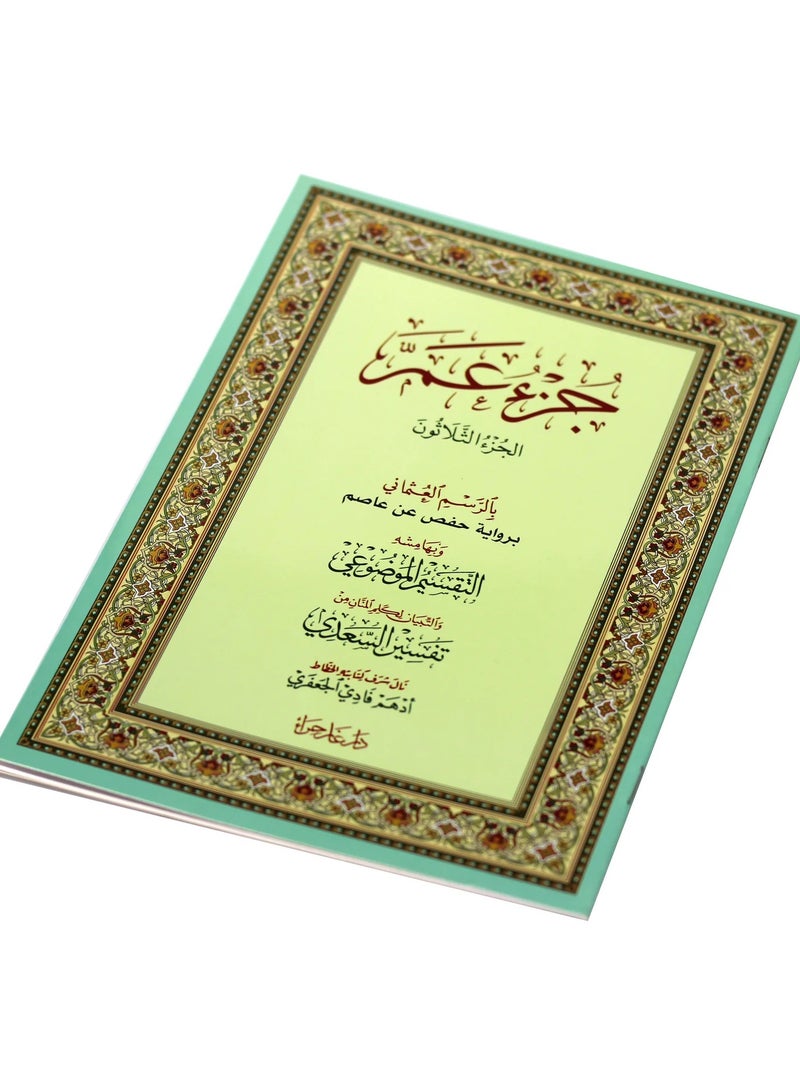 جُزْءُ عَمَّ
الجُزْءُ الثَّلَاثُونَ
بِالرَّسْمِ العُثْمَانِي
برواية حفص عن عاصم
وَبِهَامِشِهِ
التَّقْسِيْمُ المَوْضُوْعِي
وَالتِّبْيَان لِكَلِمِ المَنَّانِ مِنْ
تَفْسِيْرِ السَّعْدِي
نَالَ شَرَفَ كِتَابَتِهِ الخَطَّاط
أَدْهَم فَادِي الجَعْفَرِي
دار غار حراء